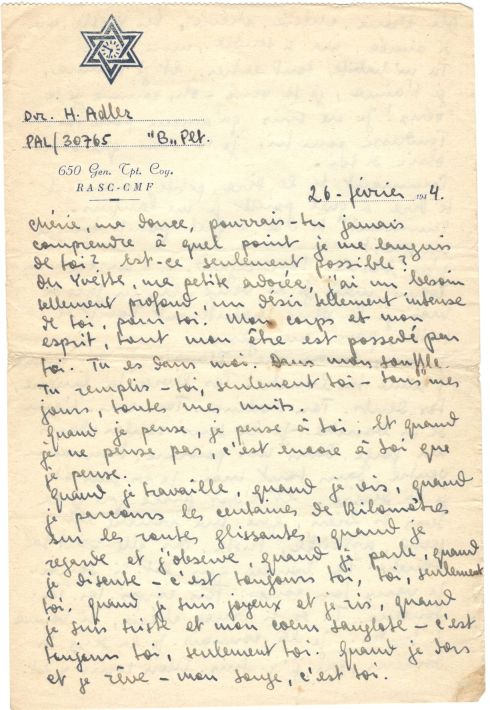 Dvr. H. Adler
PAL/30765 "B" Plt.
650 Gen. Tpt. Coy.
RASC-CMF
26 - février 194 4.
Chérie, ma douce, pourrais-tu jamais
comprendre à quel point je me languis
de toi? Est-ce seulement possible?
Oh Yvette, ma petite adorée, j'ai un besoin
tellement profond, un désir tellement intense
de toi, pour toi. Mon corps et mon
esprit, tout mon être est possedé par
toi. Tu es dans moi. Dans mon souffle.
Tu remplis - toi, seulement toi - tous mes
jours, toutes mes nuits.
Quand je pense, je pense à toi. Et quand
je ne pense pas, c'est encore à toi que
je pense.
Quand je travaille, quand je vis, quand
je parcours les centaines de kilomètres
sur les routes glissantes, quand je
regarde et j'observe, quand je parle, quand
je discute - c'est toujours toi, toi, seulement
toi. Quand je suis joyeux et je ris, quand
je suis triste et mon coeur sanglote - c'est
toujours toi, seulement toi. Quand je dors
et je rêve - mon songe, c'est toi.